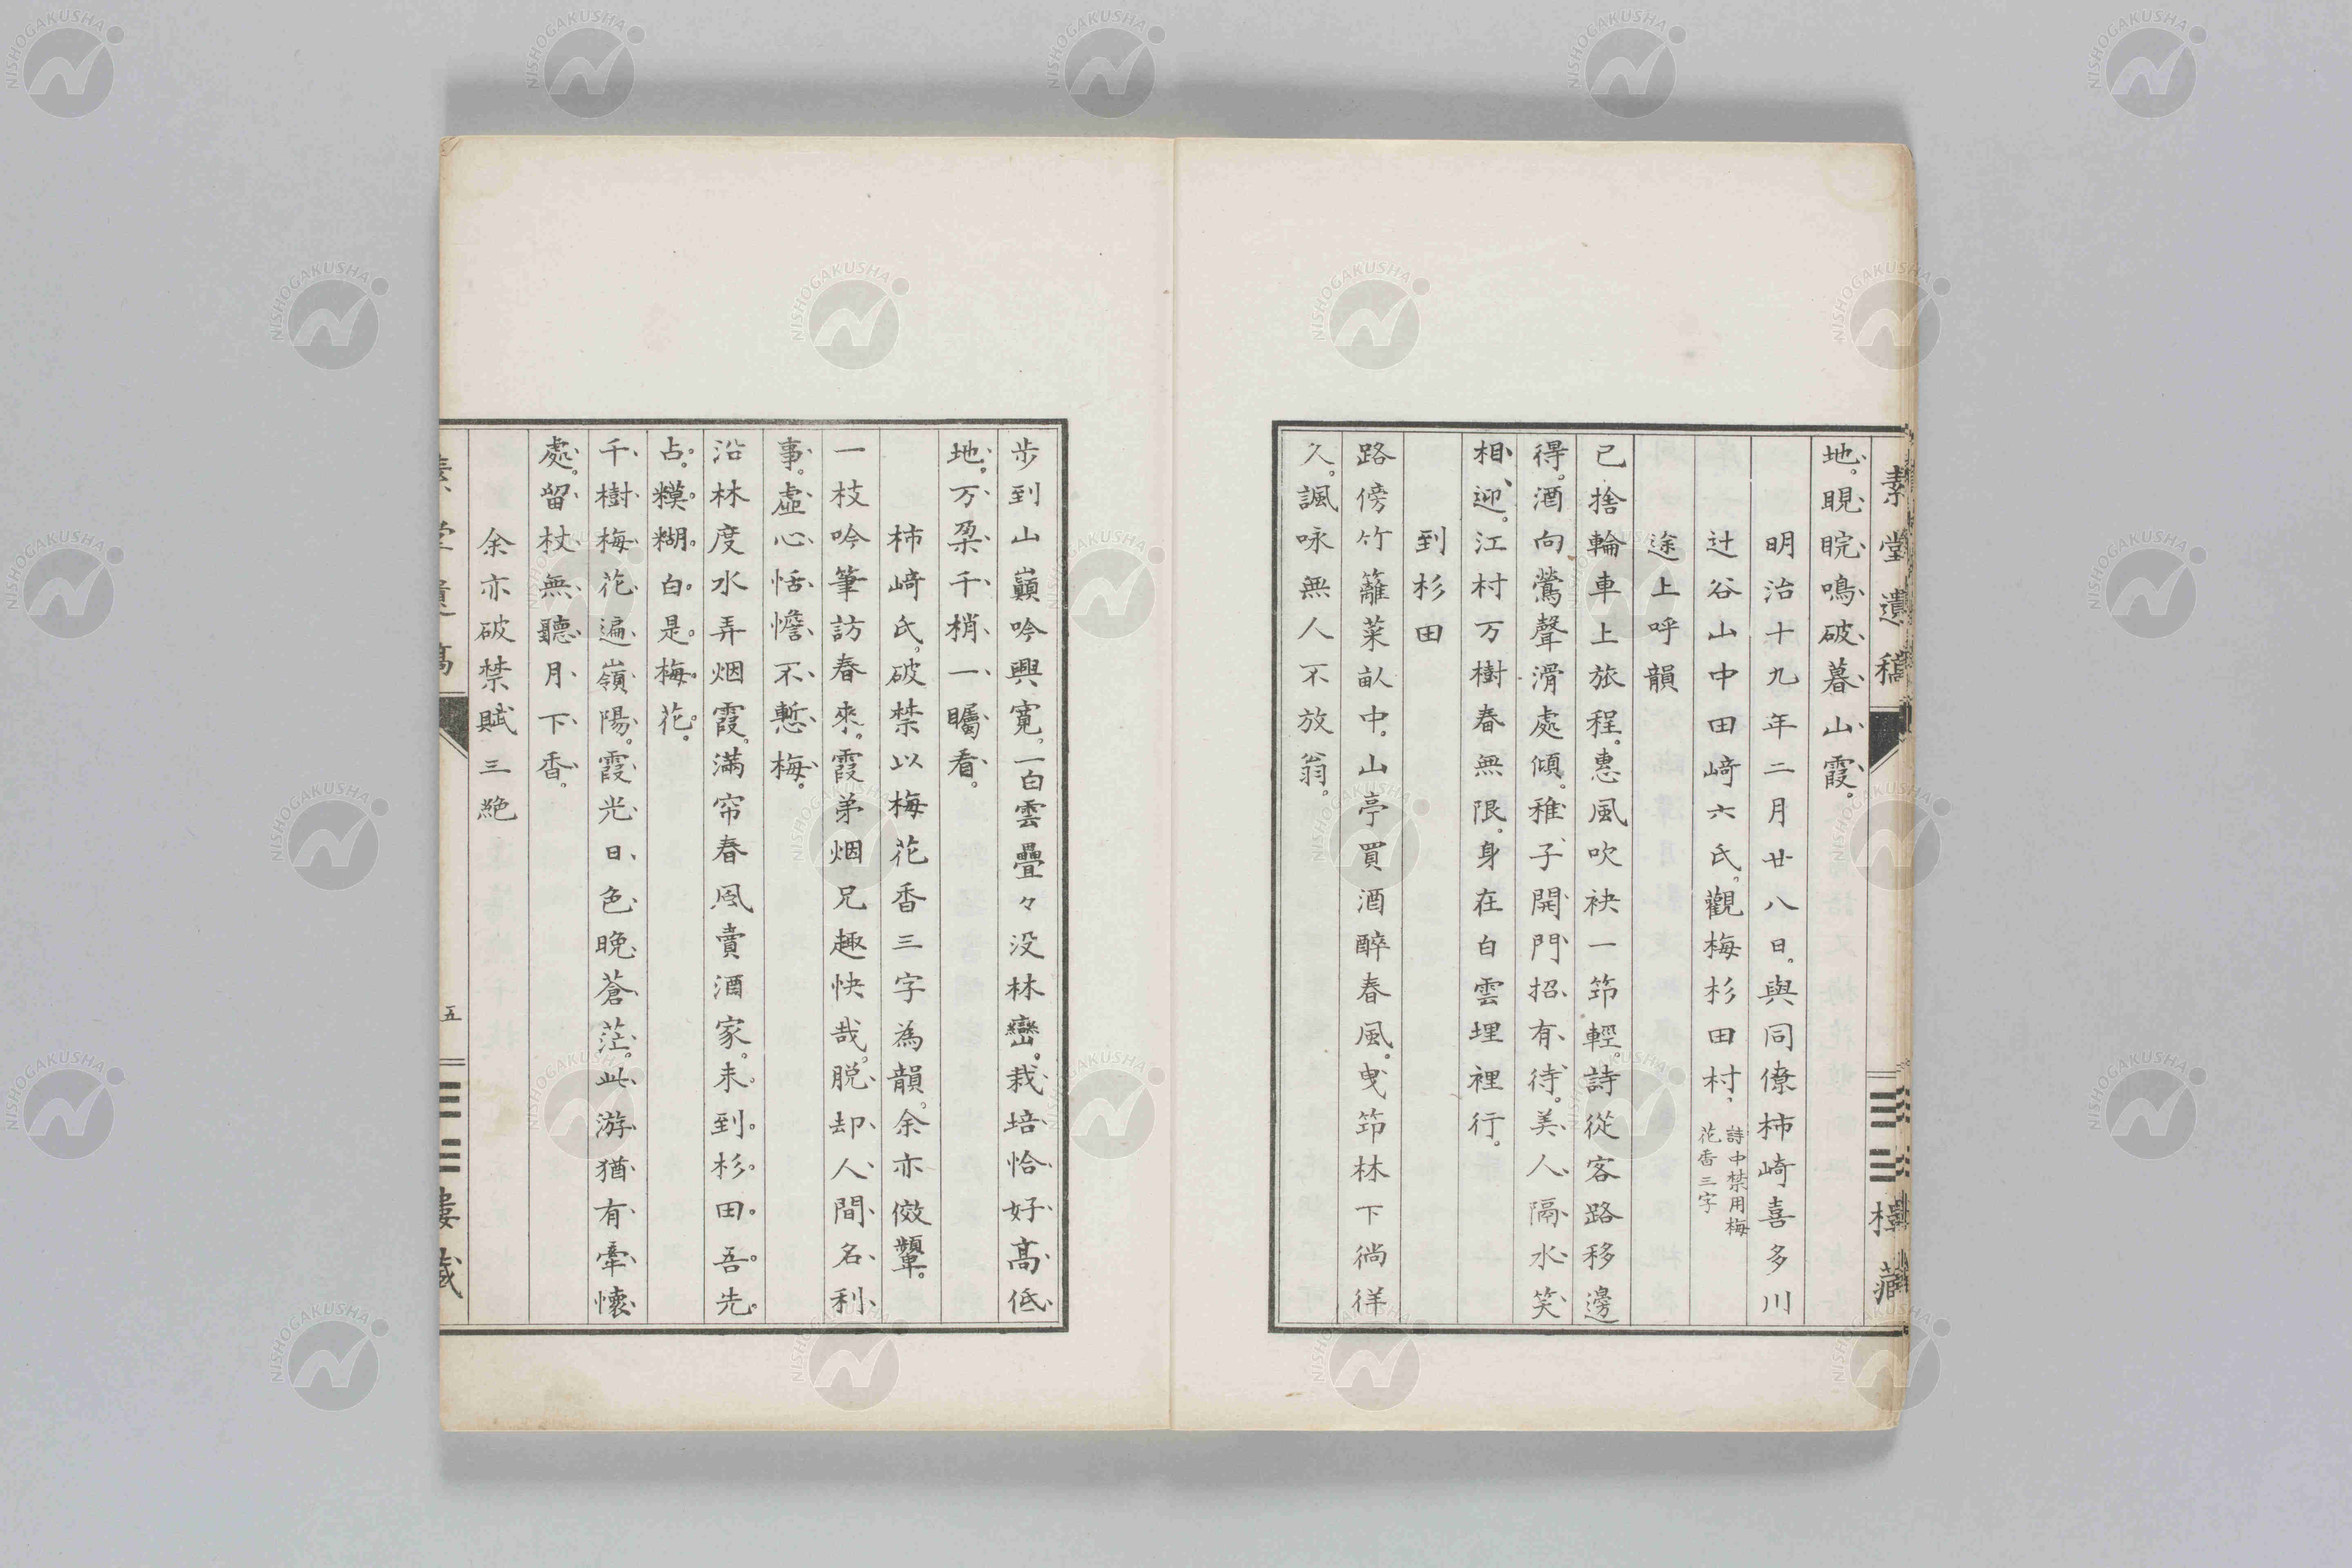 素堂遺稿
樓藏
地。睍睆鳴破暮山霞。
明治十九年二月廿八日。與同僚柿崎喜多川
辻谷山中田﨑六氏。觀梅杉田村、詩中禁用梅
花香三字
途上呼韻
已捨輪車上旅程。惠風吹袂一笻輕。詩從客路移邊
得。酒向鶯聲滑處傾。稚子開門招有待。美人隔水笑
相迎。江村万樹春無限。身在白雲埋裡行。
到杉田
路傍竹籬菜畝中。山亭買酒醉春風。曳笻林下徜徉
久。諷咏無人不放翁。
步到山巓吟興寬。一白雲疊々没林巒。栽培恰好高低
地。万朶千梢一矚看。
柿﨑氏。破禁以梅花香三字為韻。余亦傚顰。
一枝吟筆訪春來。霞弟烟兄趣快哉。脱却人間名利
事。虛心恬憺不慙梅。
沿林度水弄烟霞。滿帘春風賣酒家。未到杉田吾先
占。糢糊白是梅花。
千樹梅花遍嶺陽。霞光日色晚蒼茫。此游猶有牽懷
處。留杖無聽月下香。
余亦破禁賦三絶
素堂遺稿
五
樓藏
NISHOGAKUSHA